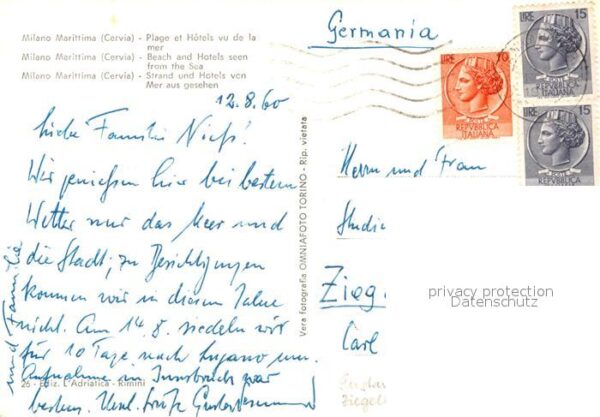 Milano Marittima (Cervia) - Plage et Hôtels vu de la
mer
Milano Marittima (Cervia) - Beach and Hotels seen
from the Sea
Milano Marittima (Cervia) - Strand und Hotels von
Mer aus gesehen
12.8.60
Liebe Familie
Wir genießen hier bei bestem
Wetter nur das Meer und
die Stadt; zu Besichtigungen
kommen wir in diesem Jahre
nicht. Am 14.8. siedeln wir
für 10 Tage nach Lugano um.
Aufnahme in Innsbruck war
bestens. Herzl. Grüße
und Familie
26 - Ediz. L'Adriatica - Rimini
Vera fotografia OMNIAFOTO TORINO - Rip. vietata
Germania
LIRE 70
POSTE
REPVBBLICA
ITALIANA
LIRE 15
REPVBBLICA
ITALIANA
LIRE 15
POSTE
REPVBBLICA
ITALIANA
Herrn und Frau
Zieg.
privacy protection
Datenschutz
Carl